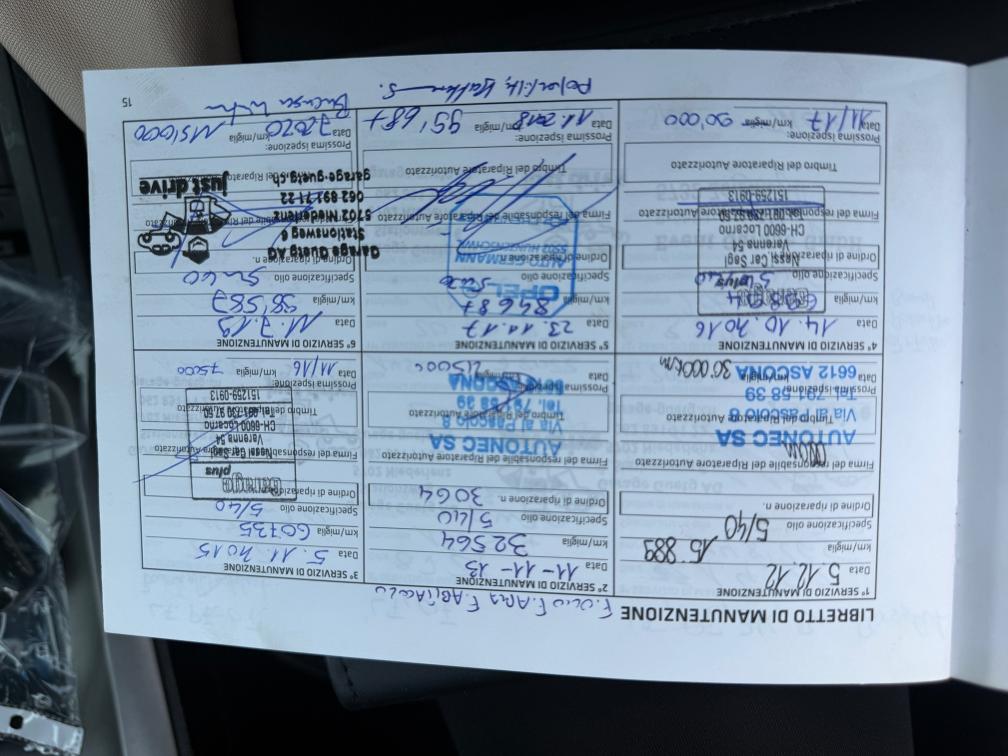 LIBRETTO DI MANUTENZIONE
F. OLIO F. ARIA F. ABITACOLO
1° SERVIZIO DI MANUTENZIONE
Data 5.12.12
km/miglia 15 889
Specificazione olio 5/40
Ordine di riparazione n.
Firma del responsabile del Riparatore Autorizzato
Timbro del Riparatore Autorizzato
AUTONEC SA
Via al Pascolo 8
Tel. 791 58 39
6612 ASCONA
Prossima ispezione:
Data km/miglia 30 000 Km
2° SERVIZIO DI MANUTENZIONE
Data 11-11-13
km/miglia 32564
Specificazione olio 5/40
Ordine di riparazione n. 3064
Firma del responsabile del Riparatore Autorizzato
Timbro del Riparatore Autorizzato
AUTONEC SA
Via al Pascolo 8
Tel. 791 58 39
ASCONA
Prossima ispezione:
Data
3° SERVIZIO DI MANUTENZIONE
Data 5.11.2015
km/miglia 60735
Specificazione olio 5/40
Ordine di riparazione n.
Firma del responsabile del Riparatore Autorizzato
Timbro del Riparatore Autorizzato
Garage plus
Nessi Car Sagl
Varenna 54
CH-6600 Locarno
151259-0913
Prossima ispezione:
Data 11/16 km/miglia 75000
4° SERVIZIO DI MANUTENZIONE
Data 14.10.2016
km/miglia
Specificazione olio 5W40
Ordine di riparazione n.
Firma del responsabile del Riparatore Autorizzato
Timbro del Riparatore Autorizzato
Garage plus
Nessi Car Sagl
Varenna 54
CH-6600 Locarno
151259-0913
Prossima ispezione:
Data 11/17 km/miglia 90'000
5° SERVIZIO DI MANUTENZIONE
Data 23.11.17
km/miglia 84687
Specificazione olio
Ordine di riparazione n.
Firma del responsabile del Riparatore Autorizzato
Timbro del Riparatore Autorizzato
OPEL
AUTO GERMANN
5502 HUNZENSCHWIL
Prossima ispezione:
Data 11.2018 km/miglia 95'687
6° SERVIZIO DI MANUTENZIONE
Data 11.7.19
km/miglia 98'587
Specificazione olio 5W40
Ordine di riparazione n.
Firma del responsabile del Riparatore Autorizzato
Timbro del Riparatore Autorizzato
Garage Guetg AG
Stationsweg 6
5702 Niederlenz
062 891 71 22
garage-guetg.ch
just drive
Prossima ispezione:
Data 7.2020 km/miglia 115'000
15